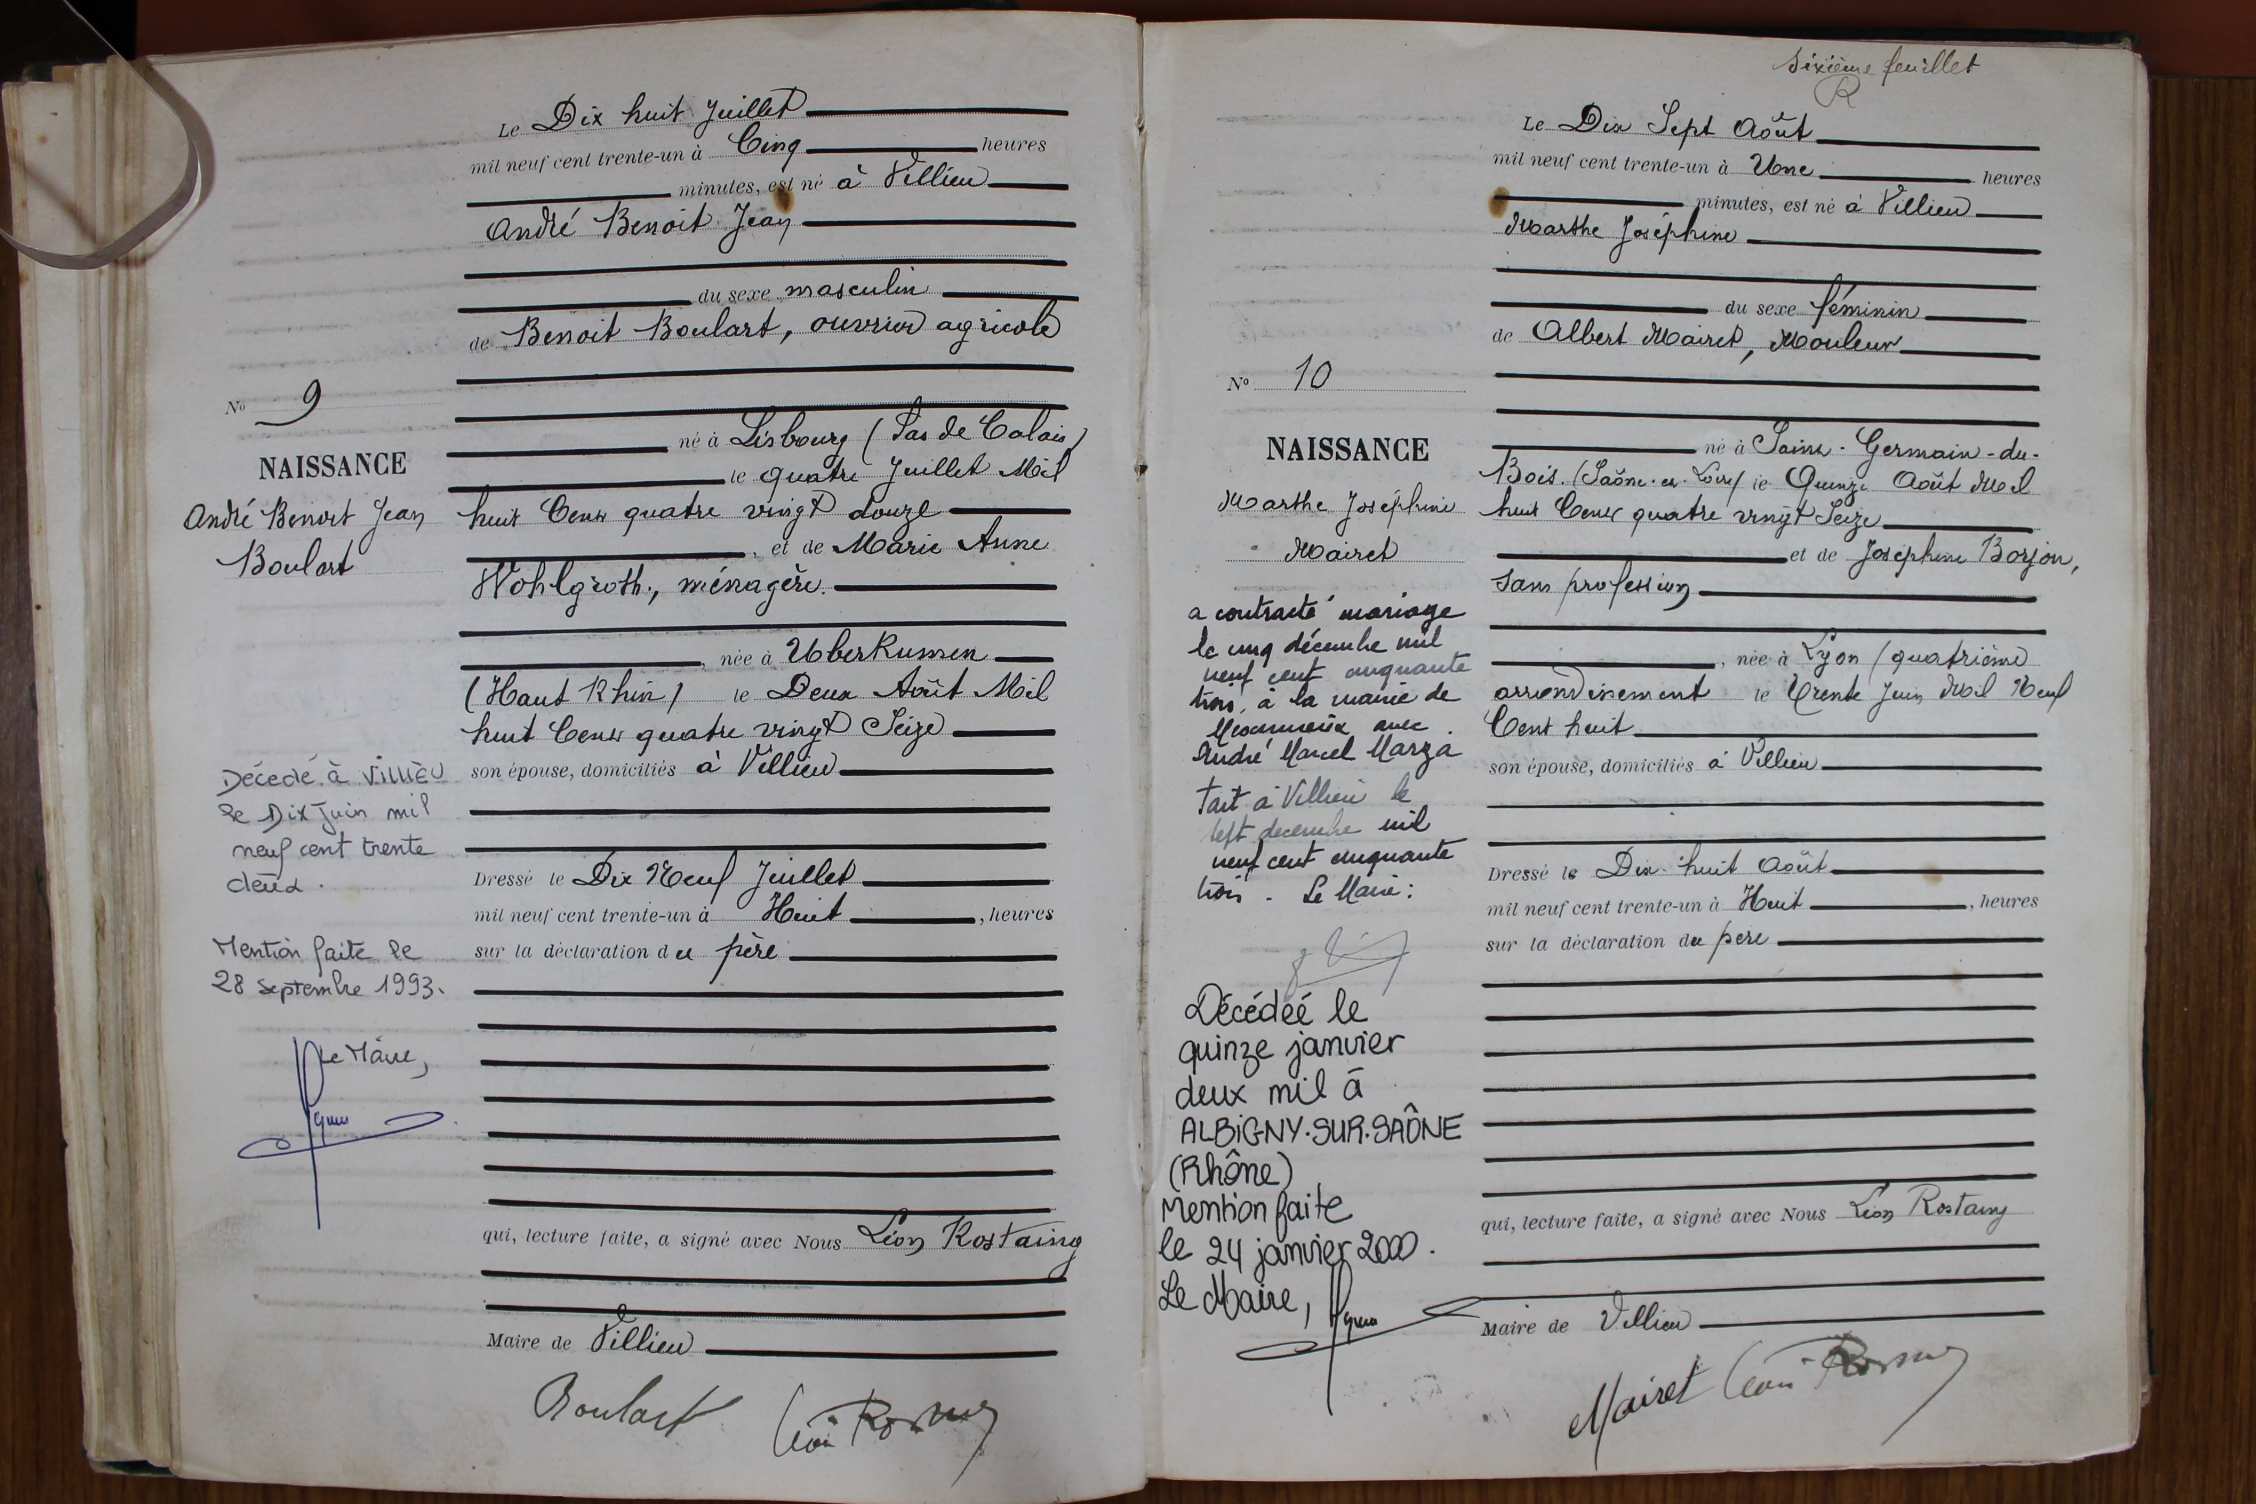 Le Dix huit Juillet
mil neuf cent trente-un à Cinq heures
minutes, est né à Villieu
André Benoit Jean
du sexe masculin
de Benoit Boulart, ouvrier agricole
né à Lisbourg (Pas de Calais)
le quatre Juillet Mil
huit Cent quatre vingt douze
, et de Marie Anne
Wohlgroth, ménagère.
, née à Uberkumen
(Haut Rhin) le Deux Août Mil
huit Cent quatre vingt Seize
son épouse, domiciliés à Villieu
Dressé le Dix Neuf Juillet
mil neuf cent trente-un à Huit , heures
sur la déclaration du père
qui, lecture faite, a signé avec Nous Léon Rostaing
Maire de Villieu
Boulart
No 9
NAISSANCE
André Benoit Jean
Boulart
Décédé à Villieu
le Dix Juin mil
neuf cent trente
deux.
Mention faite le
28 septembre 1993.
Le Maire,
sixième feuillet
R
Le Dix Sept Août
mil neuf cent trente-un à Une heures
minutes, est né à Villieu
Marthe Joséphine
du sexe féminin
de Albert Mairet, Mouleur
né à Saint-Germain-du-
Bois (Saône-et-Loire) le Quinze Août Mil
huit Cent quatre vingt Seize
et de Joséphine Borjon,
sans profession
, née à Lyon (quatrième
arrondissement le Trente Juin Mil Neuf
Cent huit
son épouse, domiciliés à Villieu
Dressé le Dix-huit Août
mil neuf cent trente-un à Huit , heures
sur la déclaration du père
qui, lecture faite, a signé avec Nous Léon Rostaing
Maire de Villieu
Mairet
No 10
NAISSANCE
Marthe Joséphine
Mairet
a contracté mariage
le cinq décembre mil
neuf cent cinquante
trois, à la mairie de
avec
André Marcel Marza
fait à Villieu le
sept décembre mil
neuf cent cinquante
trois. Le Maire:
Décédée le
quinze janvier
deux mil à
ALBIGNY-SUR-SAÔNE
(Rhône)
Mention faite
le 24 janvier 2000.
Le Maire,